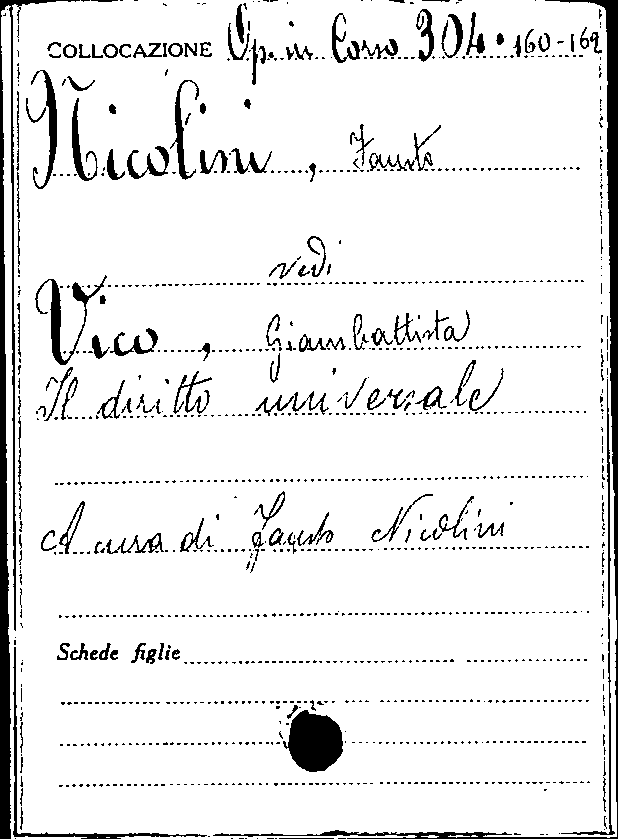 COLLOCAZIONE Op. in Corso 304. 160-162
Nicolini, Fausto
vedi
Vico, Giambattista
Il diritto universale
A cura di Fausto Nicolini
Schede figlie